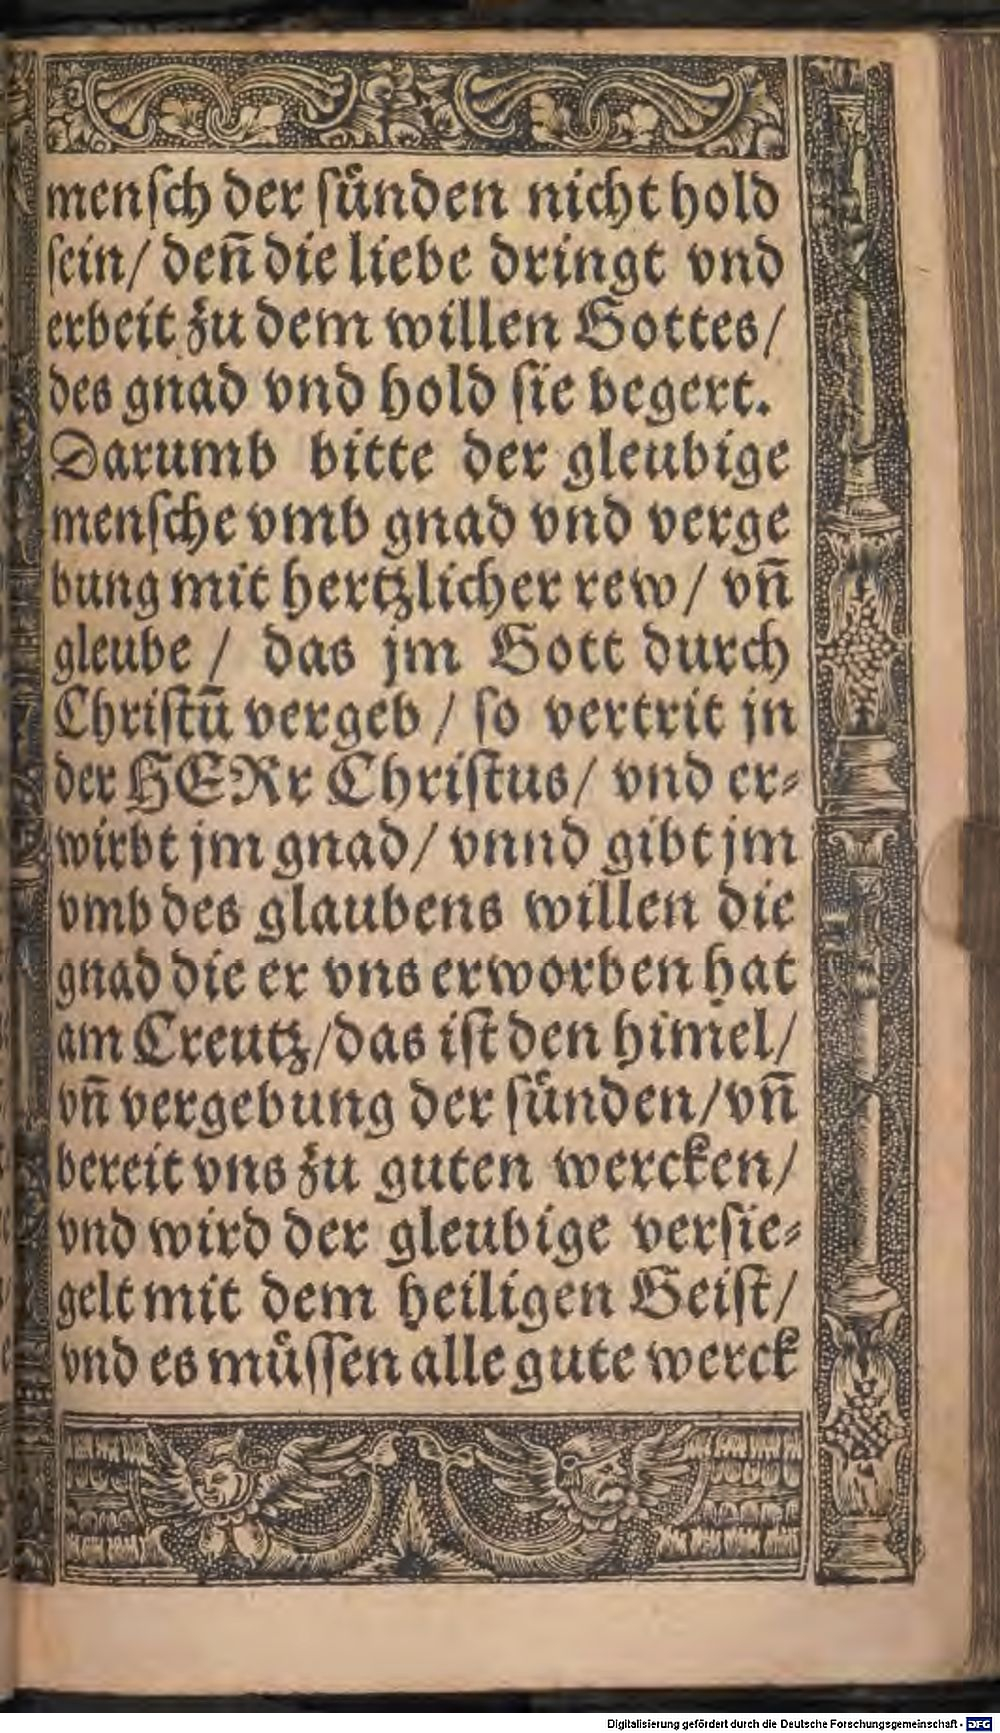 menſch der ſuͤnden nicht hold
ſein/ deñ die liebe dringt vnd
erbeit zu dem willen Gottes/
des gnad vnd hold ſie begert.
Darumb bitte der gleubige
menſche vmb gnad vnd verge
bung mit hertzlicher rew/ vñ
gleube / das jm Gott durch
Chriſtū vergeb / ſo vertrit jn
der HERr Chriſtus/ vnd er⸗
wirbt jm gnad/ vnnd gibt jm
vmb des glaubens willen die
gnad die er vns erworben hat
am Creutz/das iſt den himel/
vñ vergebung der ſuͤnden/vñ
bereit vns zu guten wercken/
vnd wird der gleubige verſie⸗
gelt mit dem heiligen Geiſt/
vnd es muͤſſen alle gute werck
Digitalisierung gefördert durch die Deutsche Forschungsgemeinschaft - DFG